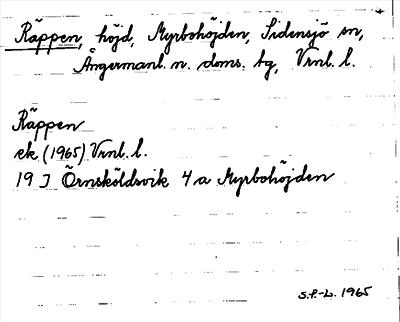 Räppen, höjd, Myrbohöjden, Sidensjö sn,
Ångermanl. n. doms. tg, Vrnl. l.
Räppen
ek (1965) Vrnl. l.
19 J Örnsköldsvik 4 a Myrbohöjden
S.F.-L. 1965